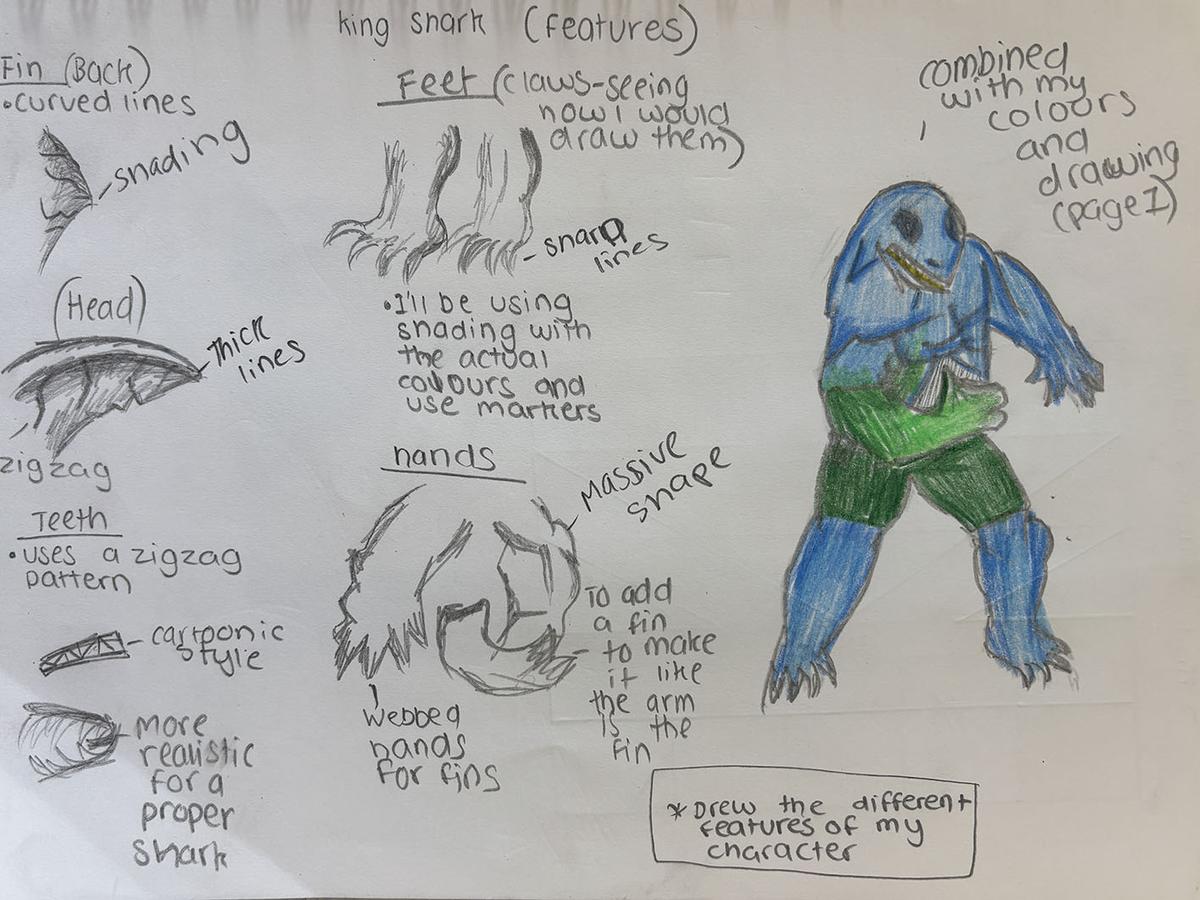 king shark (features)
Fin (Back)
•curved lines
shading
(Head)
Thick
lines
zigzag
Teeth
•uses a zigzag
pattern
cartoonic
style
more
realistic
for a
proper
shark
Feet (claws-seeing
how I would
draw them)
sharp
lines
•I'll be using
shading with
the actual
colours and
use markers
hands
Massive
shape
To add
a fin
to make
it like
the arm
is the
fin
webbed
hands
for fins
combined
with my
colours
and
drawing
(page 1)
* Drew the different
features of my
character